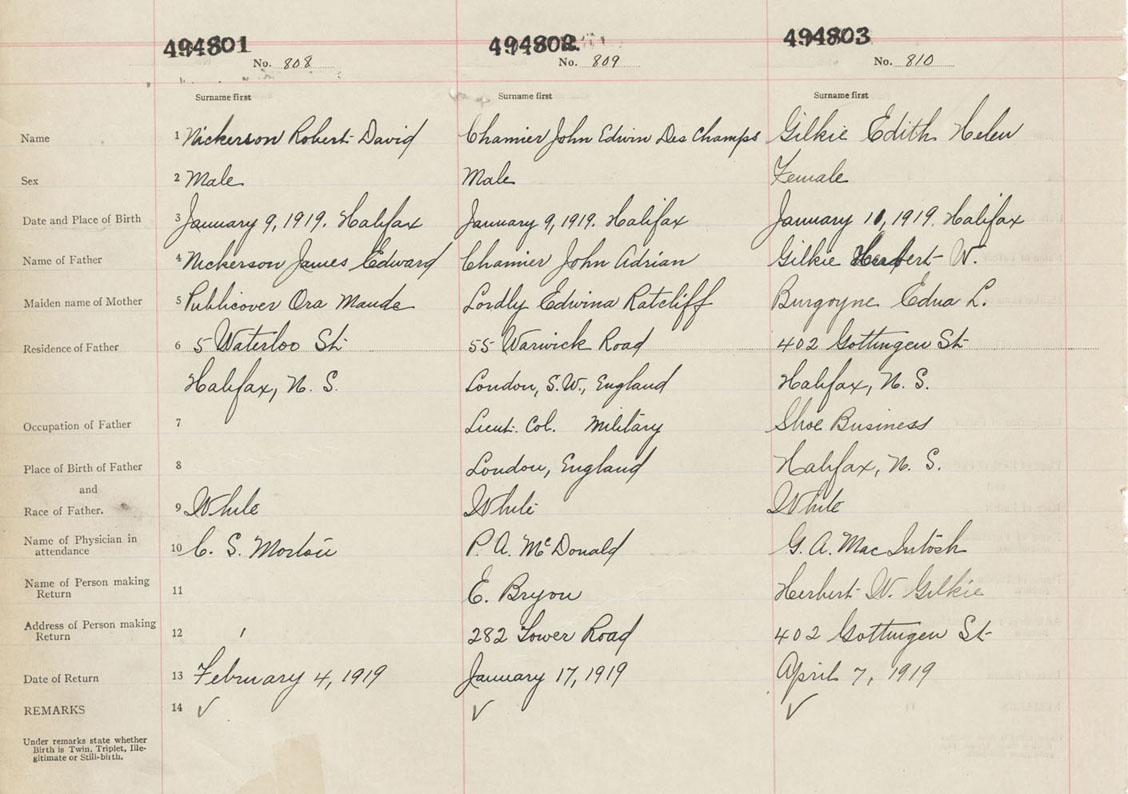 494801 494802 494803
No. 808 No. 809 No. 810
Surname first Surname first Surname first
Name 1 Nickerson Robert David Chamier John Edwin Des Champs Gilkie Edith Helen
Sex 2 Male Male Female
Date and Place of Birth 3 January 9, 1919. Halifax January 9, 1919. Halifax January 10, 1919. Halifax
Name of Father 4 Nickerson James Edward Chamier John Adrian Gilkie Herbert W.
Maiden name of Mother 5 Publicover Ora Maude Lordly Edwina Ratcliff Burgoyne Edna L.
Residence of Father 6 5 Waterloo St. 55 Warwick Road 402 Gottingen St
Halifax, N. S. London, S.W., England Halifax, N. S.
Occupation of Father 7 Lieut. Col. Military Shoe Business
Place of Birth of Father 8 London, England Halifax, N. S.
and
Race of Father. 9 White White White
Name of Physician in
attendance 10 C. S. Morton P. A. McDonald G. A. MacIntosh
Name of Person making
Return 11 E. Bryon Herbert W. Gilkie
Address of Person making
Return 12 282 Tower Road 402 Gottingen St
Date of Return 13 February 4, 1919 January 17, 1919 April 7, 1919
REMARKS 14 ✓ ✓ ✓
Under remarks state whether
Birth is Twin, Triplet, Ille-
gitimate or Still-birth.